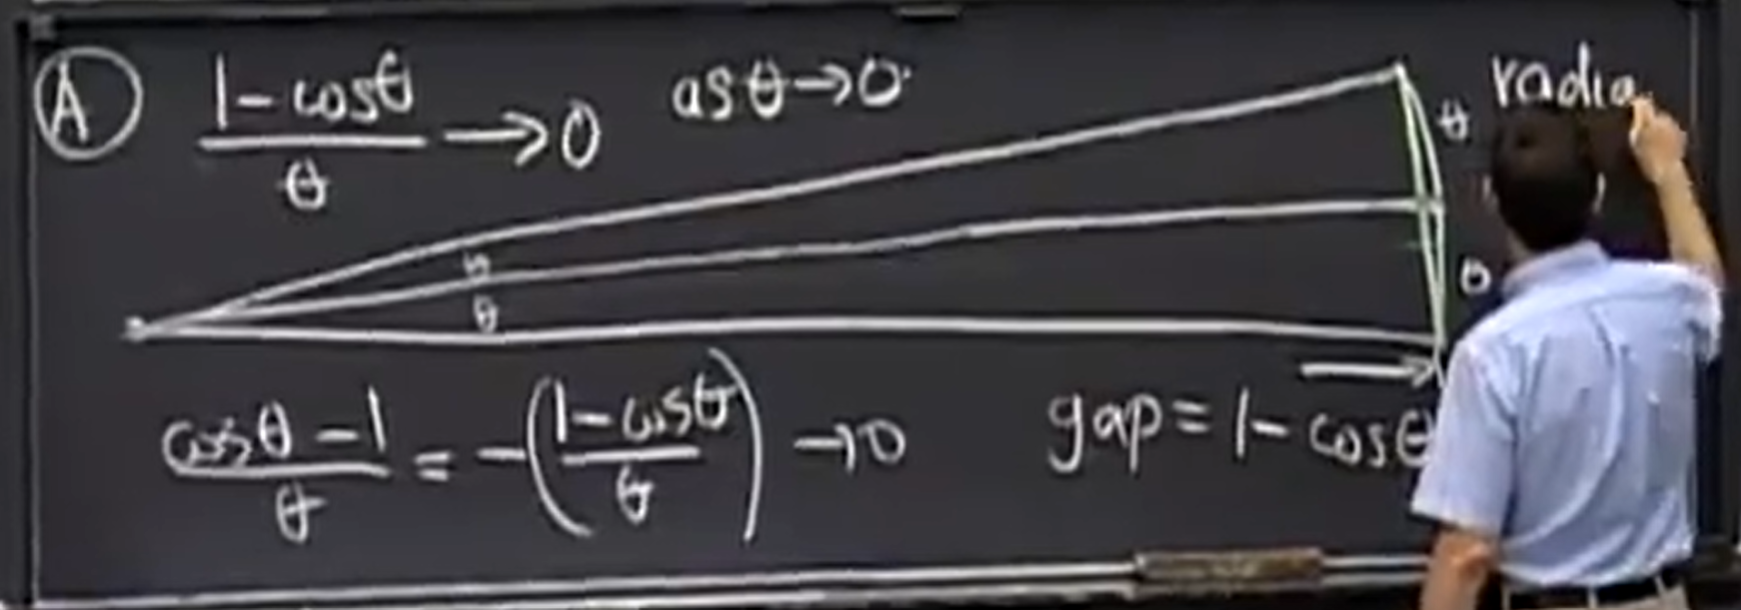 A (1 - cosθ)/θ → 0 as θ → 0
θ radia
θ
θ
θ
(cosθ - 1)/θ = -((1 - cosθ)/θ) → 0
gap = 1 - cosθ